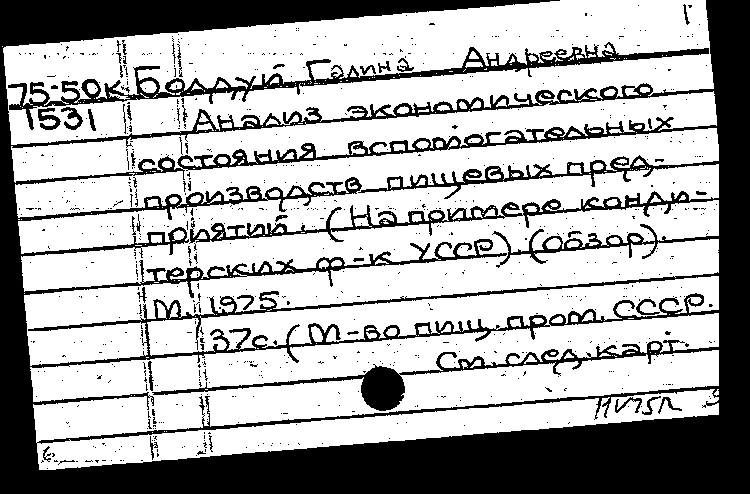 1
75-50к Болдуй, Галина Андреевна
1531 Анализ экономического
состояния вспомогательных
производств пищевых пред-
приятий. (На примере конди-
терских ф-к УССР). (Обзор).
М. 1975.
37с. (М-во пищ. пром. СССР.
См. след. карт.